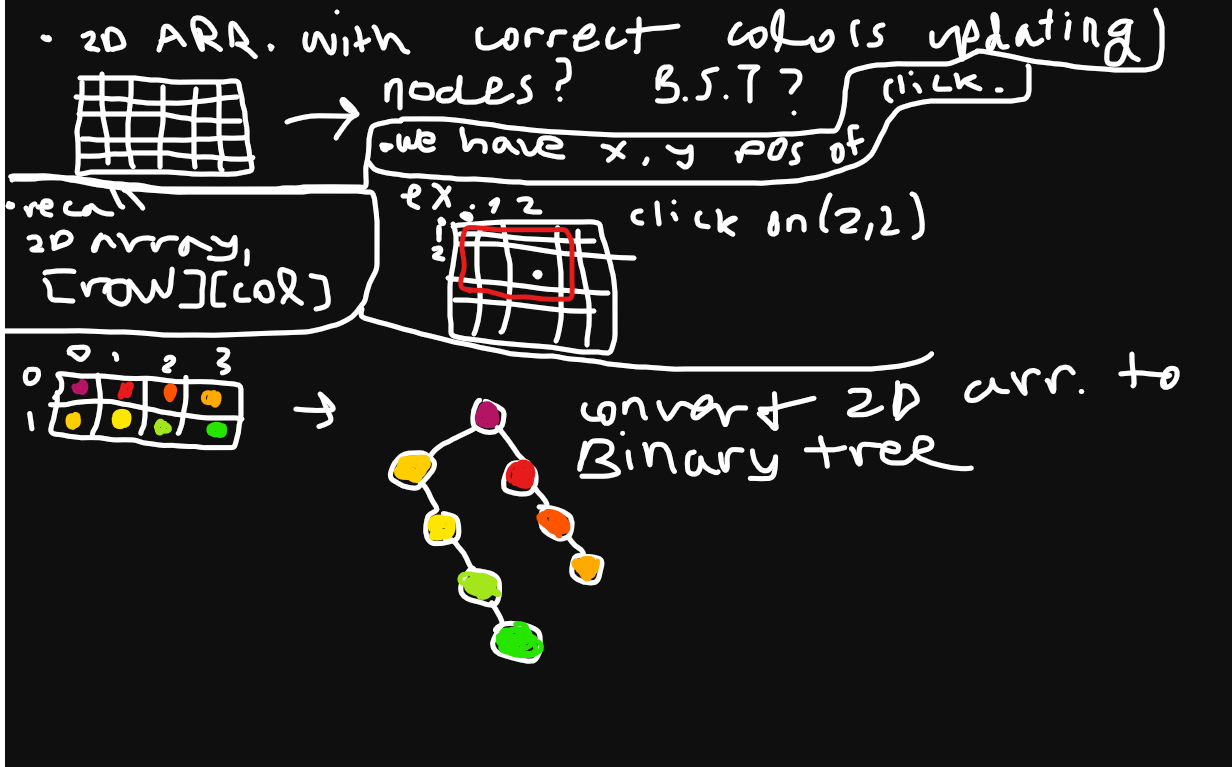 • 2D ARR. with correct colors updating
nodes? B.S.T?
•we have x, y pos of click.
•recall
2D Array,
[row][col]
ex
0 1 2
1
2
click on (2,2)
0 1 2 3
0
1
convert 2D arr. to
Binary tree